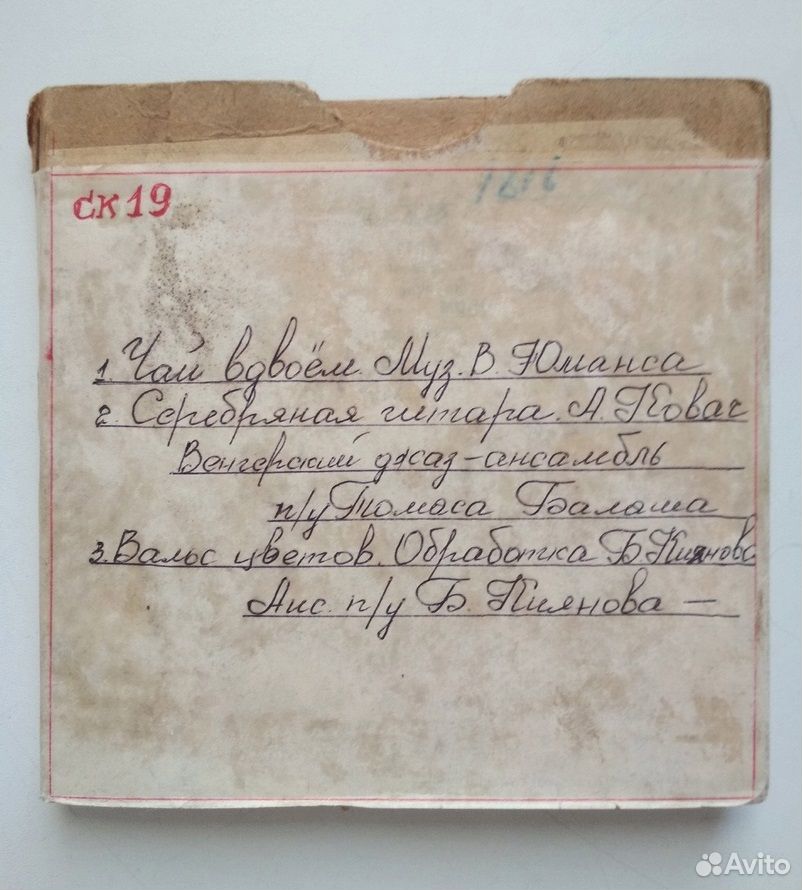 СК 19
1. Чай вдвоём. Муз. В. Юманса
2. Серебряная гитара. А. Ковач
Венгерский джаз-ансамбль
п/у Томаса Балаша
3. Вальс цветов. Обработка Б. Киянова
Анс. п/у Б. Киянова —
Avito